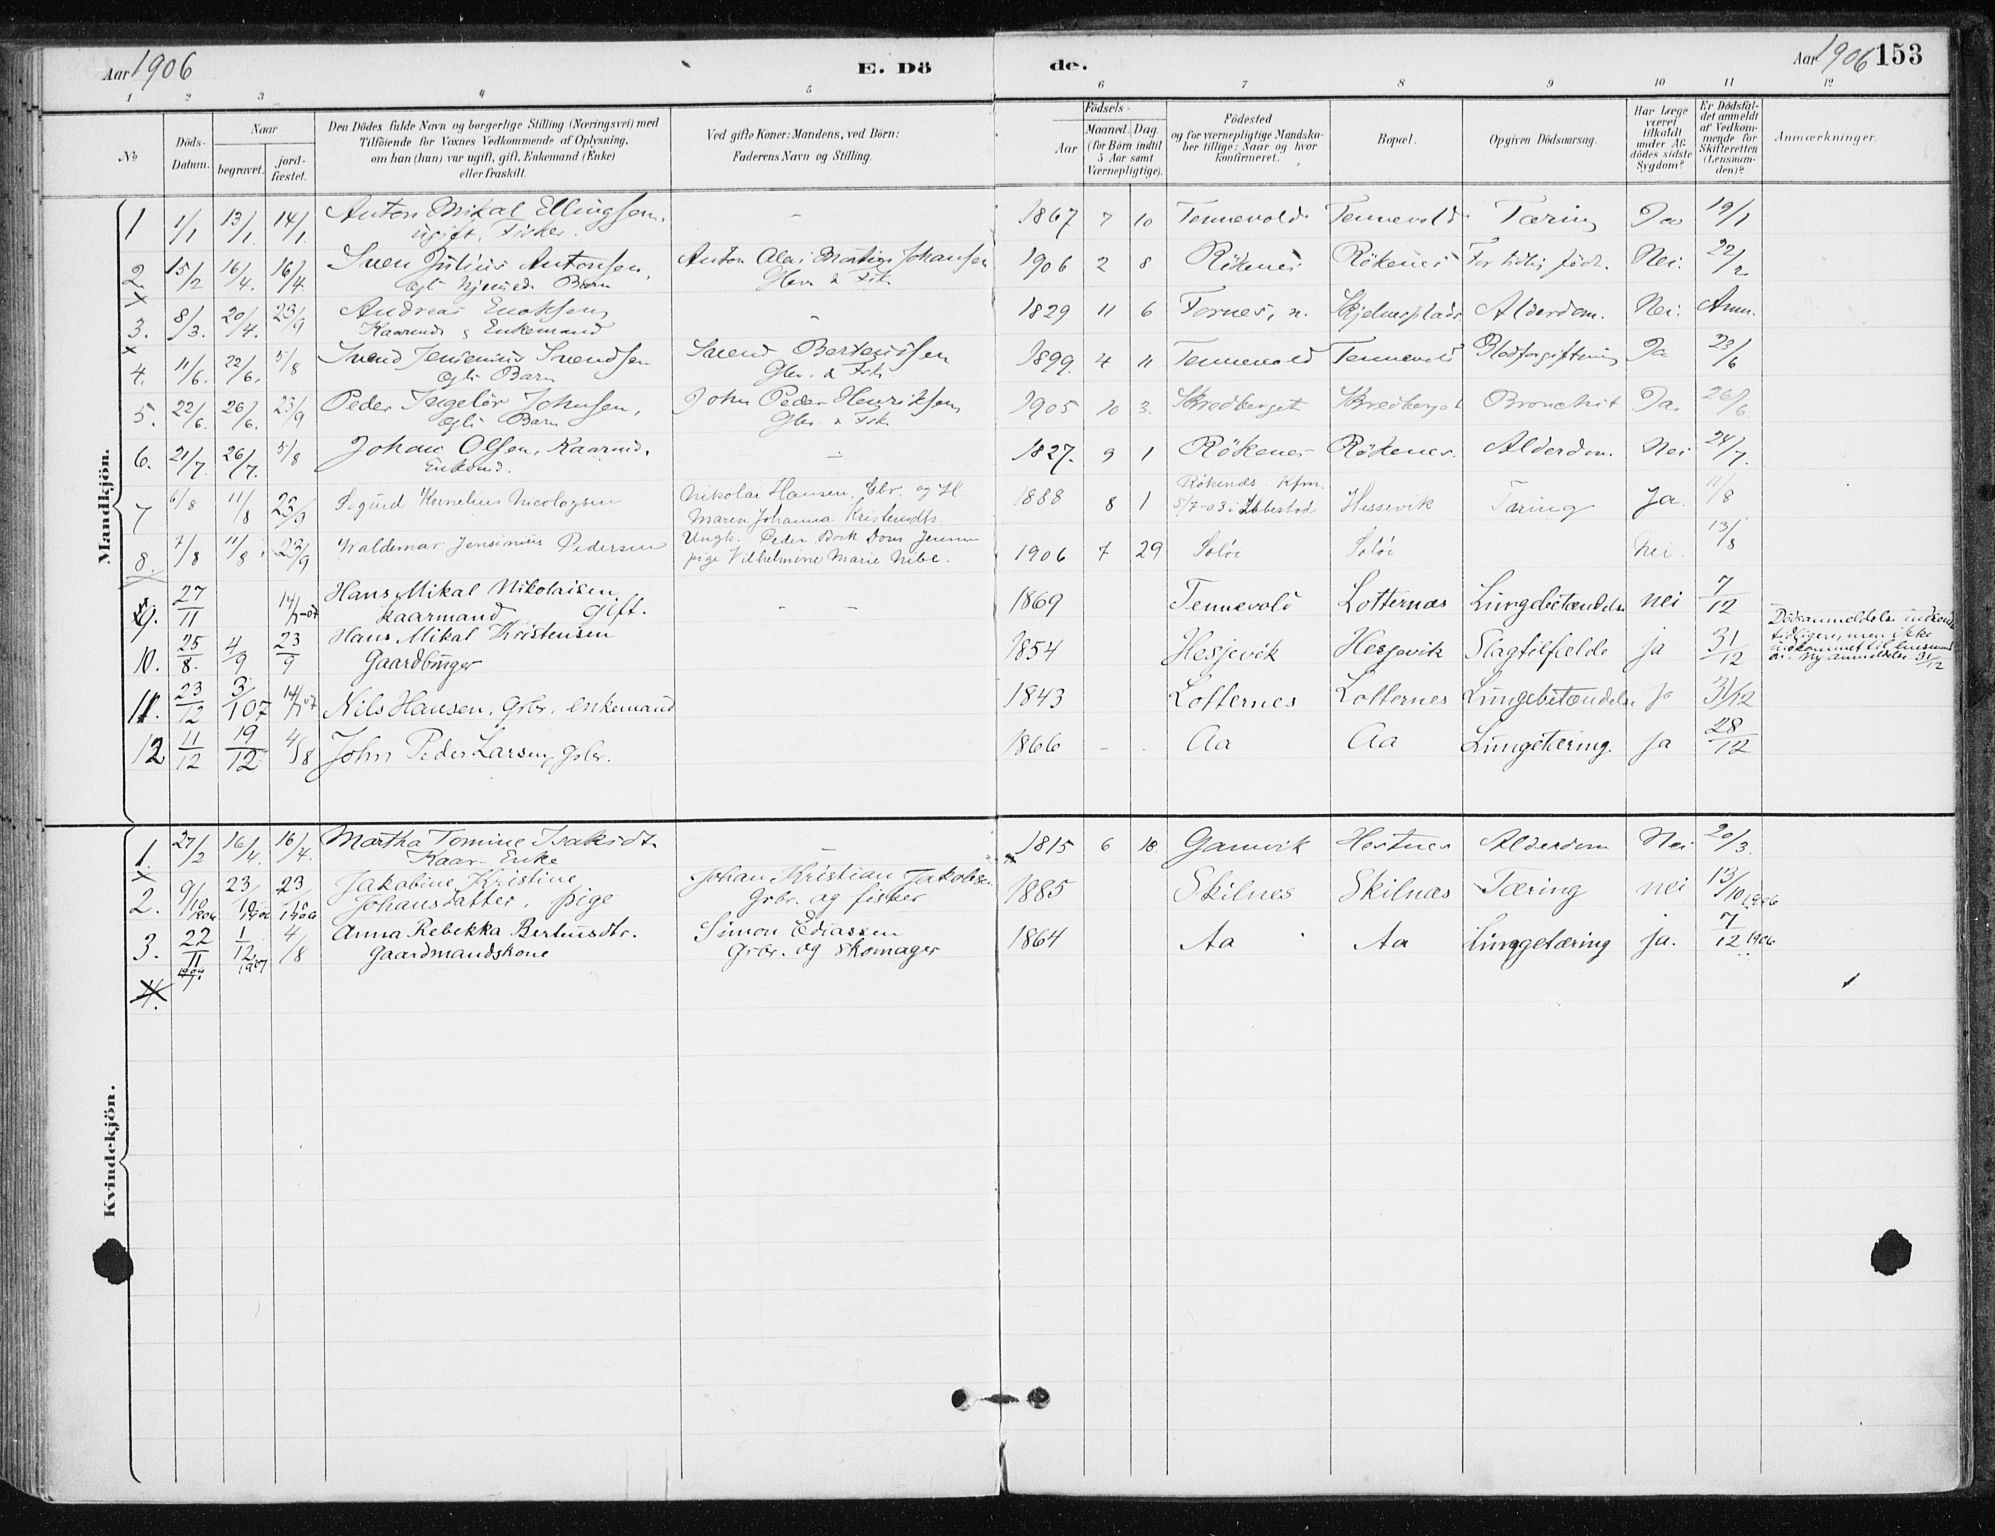 Aar 1906
E. Dö
de.
Aar 1906 153
1 2 3 4 5 6 7 8 9 10 11 12
No
Döds-Datum.
Naar
begravet.
jord-fæstet.
Den Dödes fulde Navn og borgerlige Stilling (Næringsvei) med
Tilföiende for Voxnes Vedkommende af Oplysning,
om han (hun) var ugift, gift, Enkemand (Enke)
eller fraskilt.
Ved gifte Koner: Mandens, ved Börn:
Faderens Navn og Stilling.
Födsels-
Aar
Maaned. Dag.
(for Börn indtil
5 Aar samt
Værnepligtige).
Födested
og for værnepligtige Mandska-
ber tillige: Naar og hvor
konfirmeret.
Bopæl.
Opgiven Dödsaarsag.
Har Læge
været
tilkaldt
under Af-
dödes sidste
Sygdom?
Er Dödsfal-
det anmeldt
af Vedkom-
mende for
Skifteretten
(Lensman-
den)?
Anmærkninger.
Mandkjön.
1 1/1 13/1 14/1 Anton Mikal Ellingsen, - 1867 7 10 Tennevold Tennevold Tæring Ja 19/1
ugift, Fisker.
2 15/2 16/4. 16/4. Sven Julius Antonsen, Anton Olai Martin Johansen 1906 2 8 Rökenes Rökenes For tidlig född. Nei. 22/2
Barn Gbr. & Fisk.
x
3. 8/3. 20/4. 23/9 Andreas Enoksen, - 1829 11 6 Fornes, n. Alderdom. Nei. Anm.
Kaarmd. & Enkemand
x
4. 11/6. 22/6. 5/8 Svend Jensenius Svendsen Svend Berteussen 1899. 4 11 Tennevold Tennevold Blodforgiftning Ja 23/6
ægte Barn Gbr. & Fisk.
5. 22/6. 26/6. 23/9 Peder Ingelör Johnsen, John Peder Henriksen, 1905 10 3. Skredberget Skredberget Bronchit Ja. 26/6.
ægte Barn Gbr & Fisk.
6. 21/7. 26/7. 5/8 Johan Olsen, Kaarmd. - 1827. 9 1 Rökenes Rökenes. Alderdom. Nei 24/7.
Enkemd.
7 6/8 11/8 23/9 Sigurd Kornelius Nicolaysen Nikolai Hansen, Gbr. og H. 1888 8 1 Rökenes. Kfm. Hessevik Tæring Ja. 11/8
Maren Johanna Kristensdtr. 5/7-03 i Ibbestad
8. 7/8 11/8. 23/9 Waldemar Jensinius Pedersen Ungk. Peder Bork Dons Jensen 1906 7 29 Solöi Solöi Nei. 13/8
pige Vilhelmine Marie Nibe.
9. 27/11 14/7-07 Hans Mikal Nikolaisen - - 1869 Tennevold Lotternæs Lungebetændelse nei 7/12
kaarmand gift.
10. 25/8. 4/9 23/9 Hans Mikal Kristensen 1854 Hesjevik Hesjevik Slagtilfælde ja 31/12
Gaardbruger
Dödsanmeldelse indsendt
tidligere, men ikke
indkommet til lensmand
en. Ny anmeldelse 31/12
11. 23/12 3/107 14/7 07 Nils Hansen, Grbr. enkemand 1843 Lotternes Lotternes Lungebetændelse ja 31/12
12 11/12 19/12 4/8 John Peder Larsen, Grbr. 1866 - . Aa Aa Lungetæring. ja 28/12
Kvindekjön.
1. 27/2 16/4. 16/4. Martha Tomine Isaksdtr. - 1815 6 18 Gamvik Hestnes Alderdom Nei 20/3.
Kaar-Enke
x
2. 9/10 1906 23/10 1906 23/10 1906 Jakobine Kristine Johan Kristian Jakobsen 1885 Skilnes Skilnæs Tæring nei 13/10 1906
Johansdatter, pige Grbr. og fisker
3. 22/11 1/12 1907 4/8 Anna Rebekka Bertheusdtr. Simon Ediassen 1864 Aa Aa Lungetæring ja. 7/12 1906
Gaardmandskone Grbr. og Skomager
4.